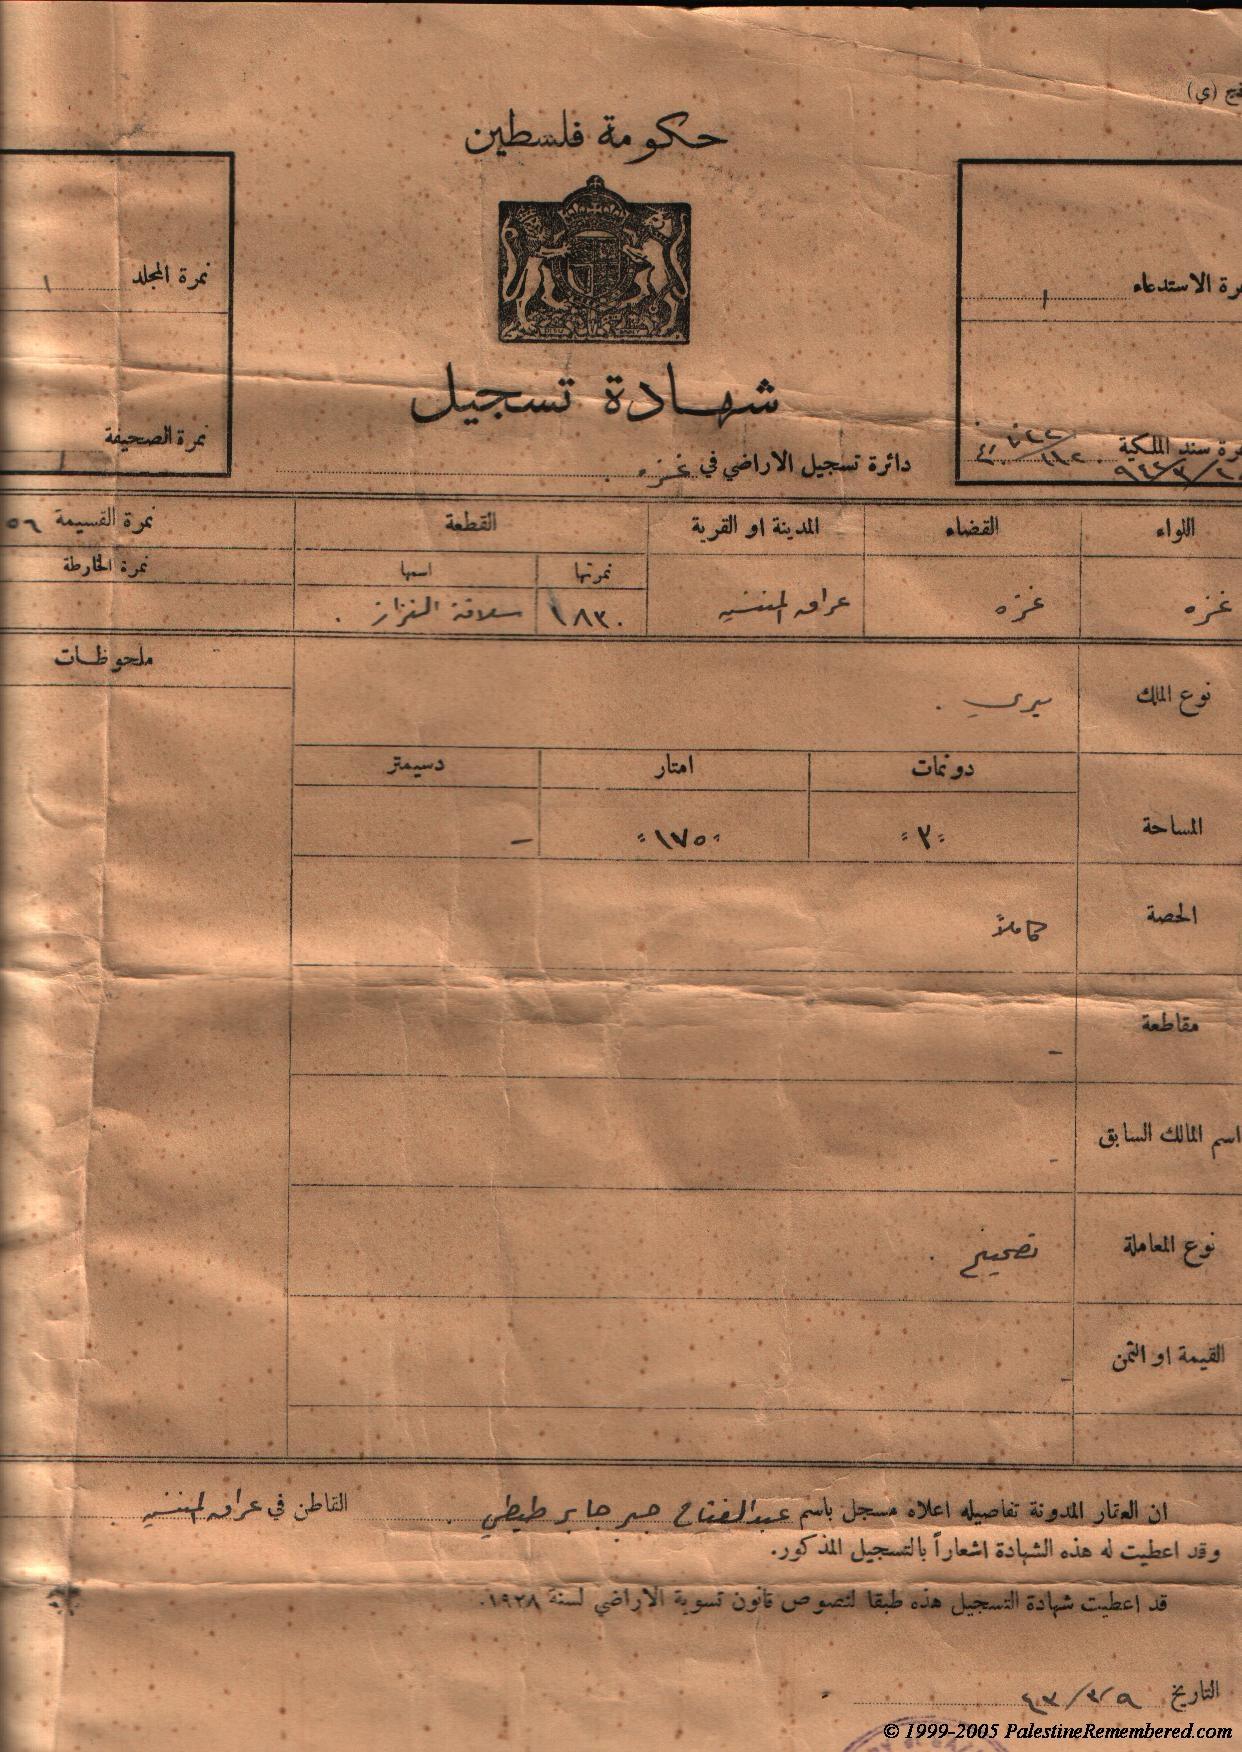 (ي)
حكومة فلسطين
نمرة الاستدعاء ١
نمرة المجلد ١
شهادة تسجيل
نمرة سند الملكية
نمرة الصحيفة ١
دائرة تسجيل الاراضي في غزه
اللواء القضاء المدينة او القرية القطعة نمرة القسيمة ٥٦
نمرتها اسمها نمرة الخارطة
غزه غزه عراق المنشيه ١٨٣
ملحوظات
نوع الملك ميري
دونمات امتار دسيمتر
المساحة ٣ ١٧٥ -
الحصة كاملاً
مقاطعة -
اسم المالك السابق -
نوع المعاملة تصحيح
القيمة او الثمن -
ان العقار المدونة تفاصيله اعلاه مسجل باسم عبد الفتاح جبر جابر طيطي القاطن في عراق المنشيه
وقد اعطيت له هذه الشهادة اشعاراً بالتسجيل المذكور.
قد اعطيت شهادة التسجيل هذه طبقا لنصوص قانون تسوية الاراضي لسنة ١٩٢٨.
التاريخ ٤٣/٣/٩
© 1999-2005 PalestineRemembered.com